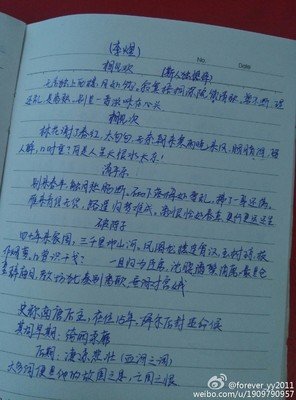 (李煜)
No.
Date
相见欢 (斯人独憔悴)
无言独上西楼,月如钩。寂寞梧桐深院锁清秋。剪不断,理
还乱,是离愁。别是一番滋味在心头
相见欢
林花谢了春红,太匆匆。无奈朝来寒雨晚来风。胭脂泪,留
人醉,几时重?自是人生长恨水长东!
清平乐
别来春半,触目柔肠断。砌下落梅如雪乱,拂了一身还满。
雁来音信无凭,路遥归梦难成。离恨恰如春草,更行更远还生
破阵子
四十年来家国,三千里地山河。凤阁龙楼连霄汉,玉树琼枝
作烟萝,几曾识干戈? 一旦归为臣虏,沈腰潘鬓消磨。最是仓
皇辞庙日,教坊犹奏别离歌,垂泪对宫娥
史称南唐后主,在位15年,降宋后封违命侯
其词早期:绮丽柔靡
后期:凄凉悲壮 (亡国之词)
大多词便是他的故国之思,亡国之恨
@forever_yy2011
weibo.com/u/1909790957